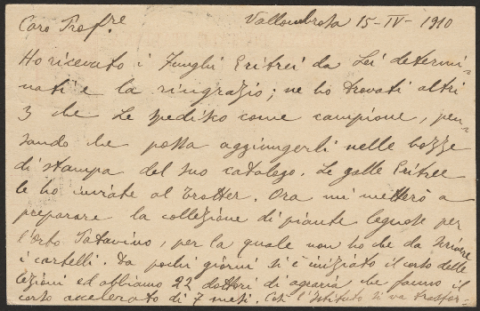 Caro Prof.re Vallombrosa 15-IV-1910
Ho ricevuto i funghi Eritrei da Lei determi-
nati e la ringrazio; ne ho trovati altri
3 che Le spedisco come campione, pen-
sando che possa aggiungerli nelle bozze
di stampa del suo catalogo. Le galle Eritree
le ho inviate al Trotter. Ora mi metterò a
preparare la collezione di piante legnose per
l'Orto Patavino, per la quale non ho che da scrivere
i cartelli. Da pochi giorni si è iniziato il corso delle
lezioni ed abbiamo 22 dottori di agraria che fanno il
corso accelerato di 7 mesi. Così l'Istituto si va trasfor-